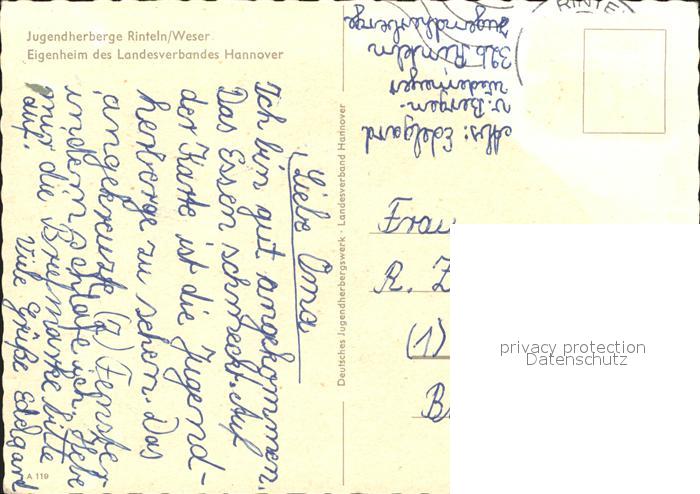 Jugendherberge Rinteln/Weser
Eigenheim des Landesverbandes Hannover
Liebe Oma
Ich bin gut angekommen.
Das Essen schmeckt. Auf
der Karte ist die Jugend-
herberge zu sehen. Das
angekreuzte (2) Fenster
indem schlafe ich. Hebe
mir die Briefmarke bitte
auf.
Viele Grüße Edelgard
A 119
Deutsches Jugendherbergswerk · Landesverband Hannover
RINTE
Abs: Edelgard
v. Bergen-
326 Rinteln
Jugendherberge
Frau
R. Z
(1)
B
privacy protection
Datenschutz